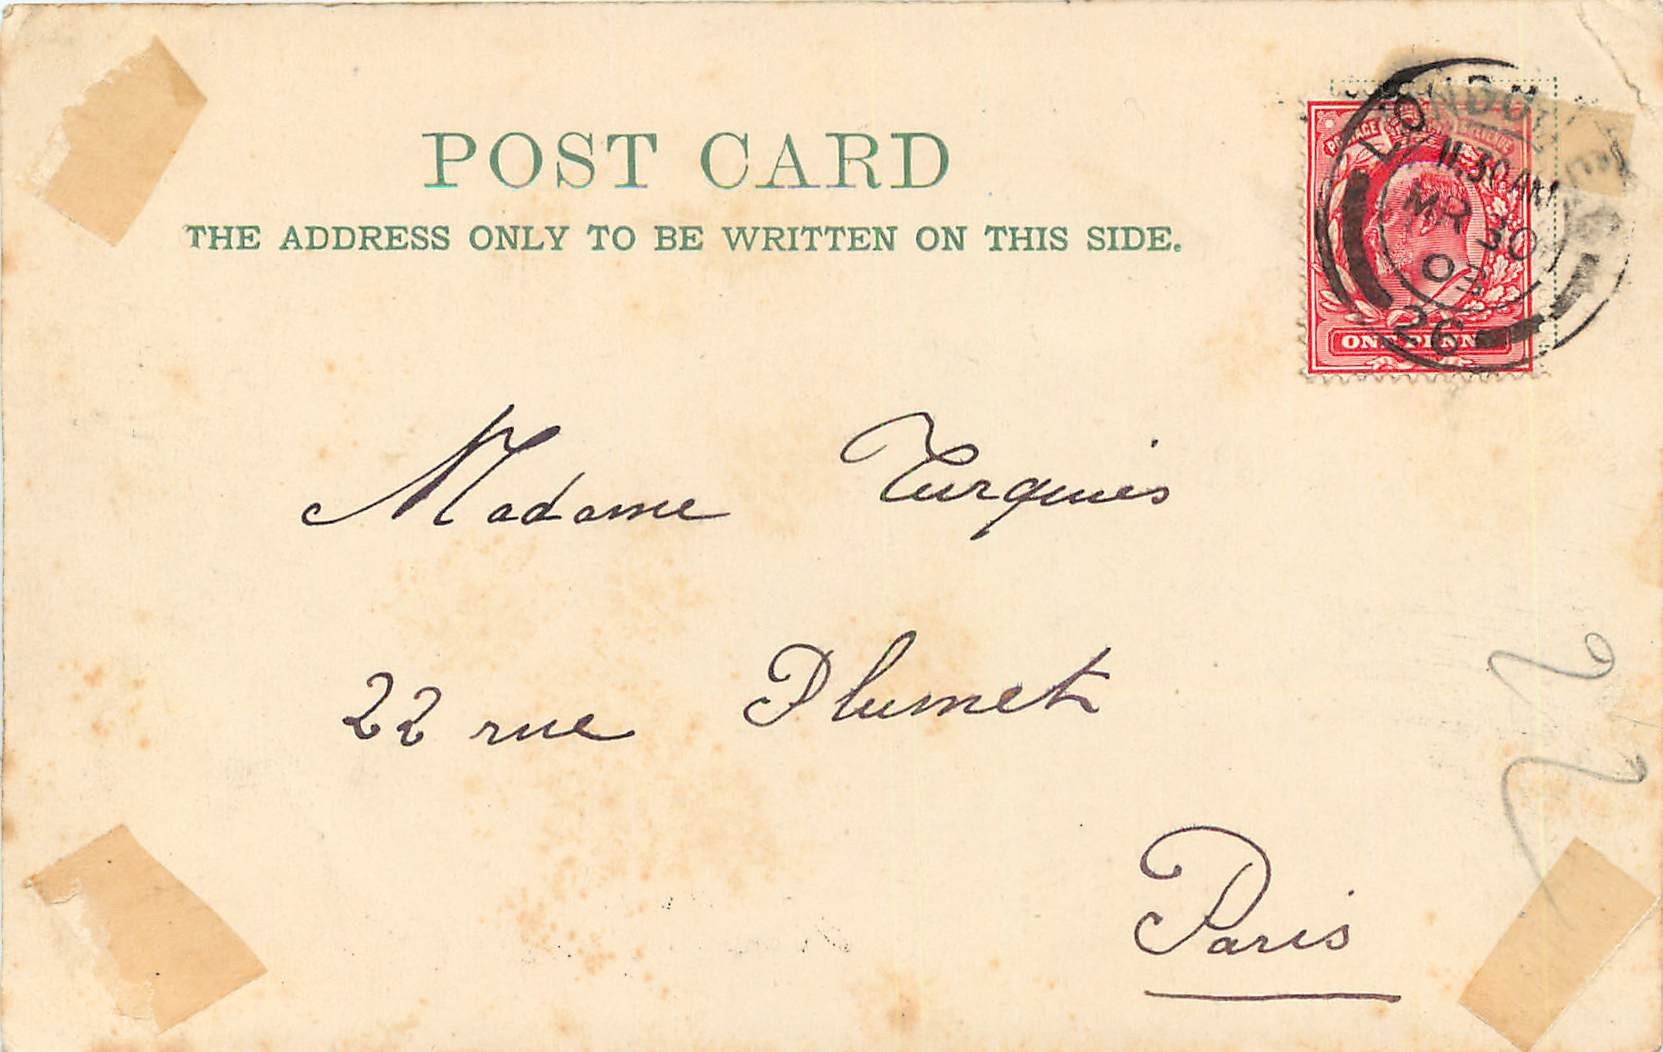 POST CARD
THE ADDRESS ONLY TO BE WRITTEN ON THIS SIDE.
LONDON
11.30 AM
MR 30
03
26
POSTAGE
ONE PENNY
Madame Turquis
22 rue Plumet
Paris